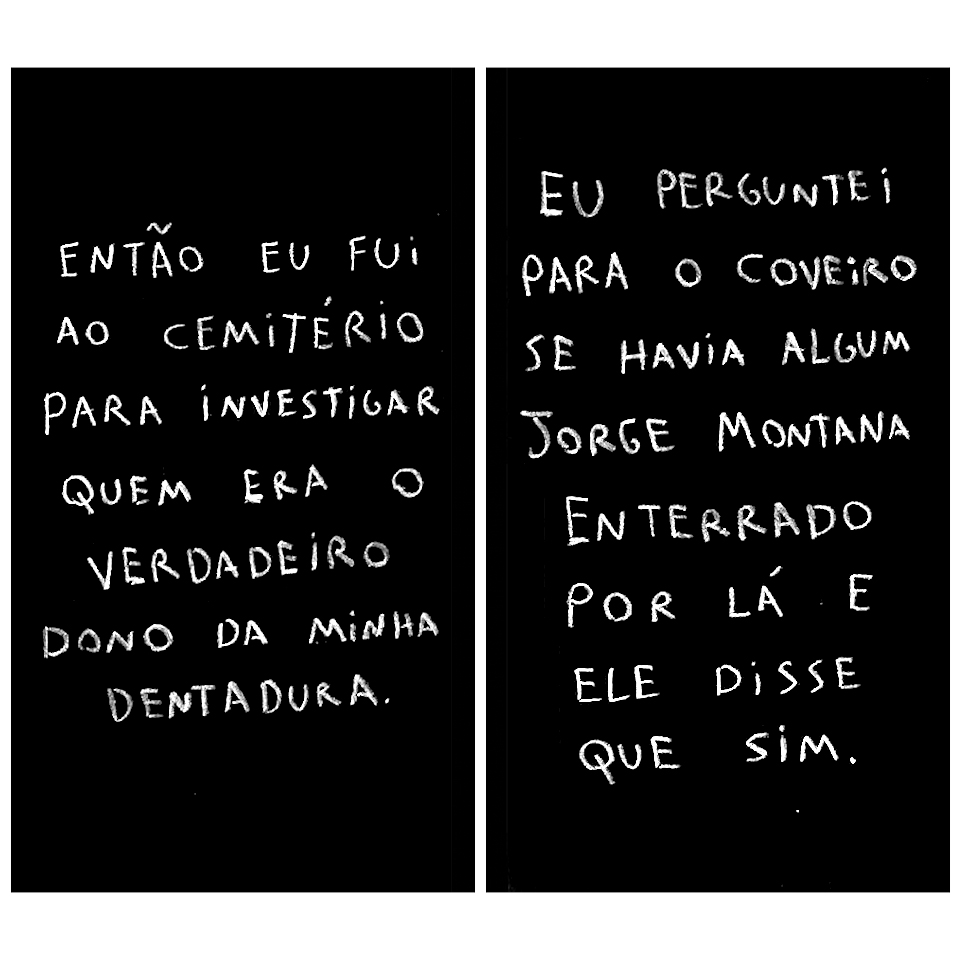 ENTÃO EU FUI
AO CEMITÉRIO
PARA INVESTIGAR
QUEM ERA O
VERDADEIRO
DONO DA MINHA
DENTADURA.
EU PERGUNTEI
PARA O COVEIRO
SE HAVIA ALGUM
JORGE MONTANA
ENTERRADO
POR LÁ E
ELE DISSE
QUE SIM.